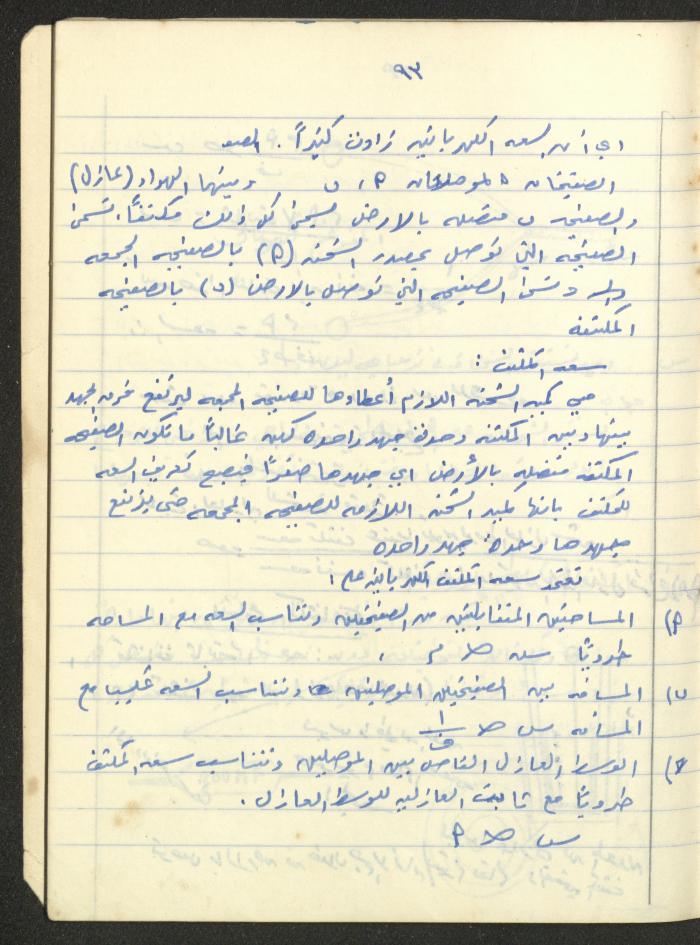 ٩٣
اي أن السعه الكهربائيه زادت كثيراً .
الصفيحتان الموصلتان م ، ب وبينهما الهواء (عازل)
والصفيحه ب متصله بالارض يسمى كل ذلك مكثفاً. تسمى
الصفيحة التي توصل بمصدر الشحنه (م) بالصفيحه المجمعه
وتسمى الصفيحه التي توصل بالارض (ب) بالصفيحه
المكثفه
سعه المكثف :
هي كميه الشحنه اللازم أعطاؤها للصفيحه المجمعه ليرتفع فرق الجهد
بينها وبين المكثفه وحدة جهد واحده لكن غالباً ما تكون الصفيحه
المكثفه متصله بالأرض اي جهدها صفراً فيصبح تعريف السعه
للمكثف بانها كميه الشحنه اللازمه للصفيحه المجمعه حتى يرتفع
جهدها وحدة جهد واحده
تعتمد سعه المكثف الكهربائيه على :
م) المساحتين المتقابلتين من الصفيحتين وتتناسب السعه مع المساحه
طردياً س ∝ م
ب) المسافه بين الصفيحتين الموصلتين وتتناسب السعه عكسيا مع
المسافه س ∝ ١/ف
ج) الوسط العازل الفاصل بين الموصلين وتتناسب سعه المكثف
طردياً مع ثابت العازليه للوسط العازل .